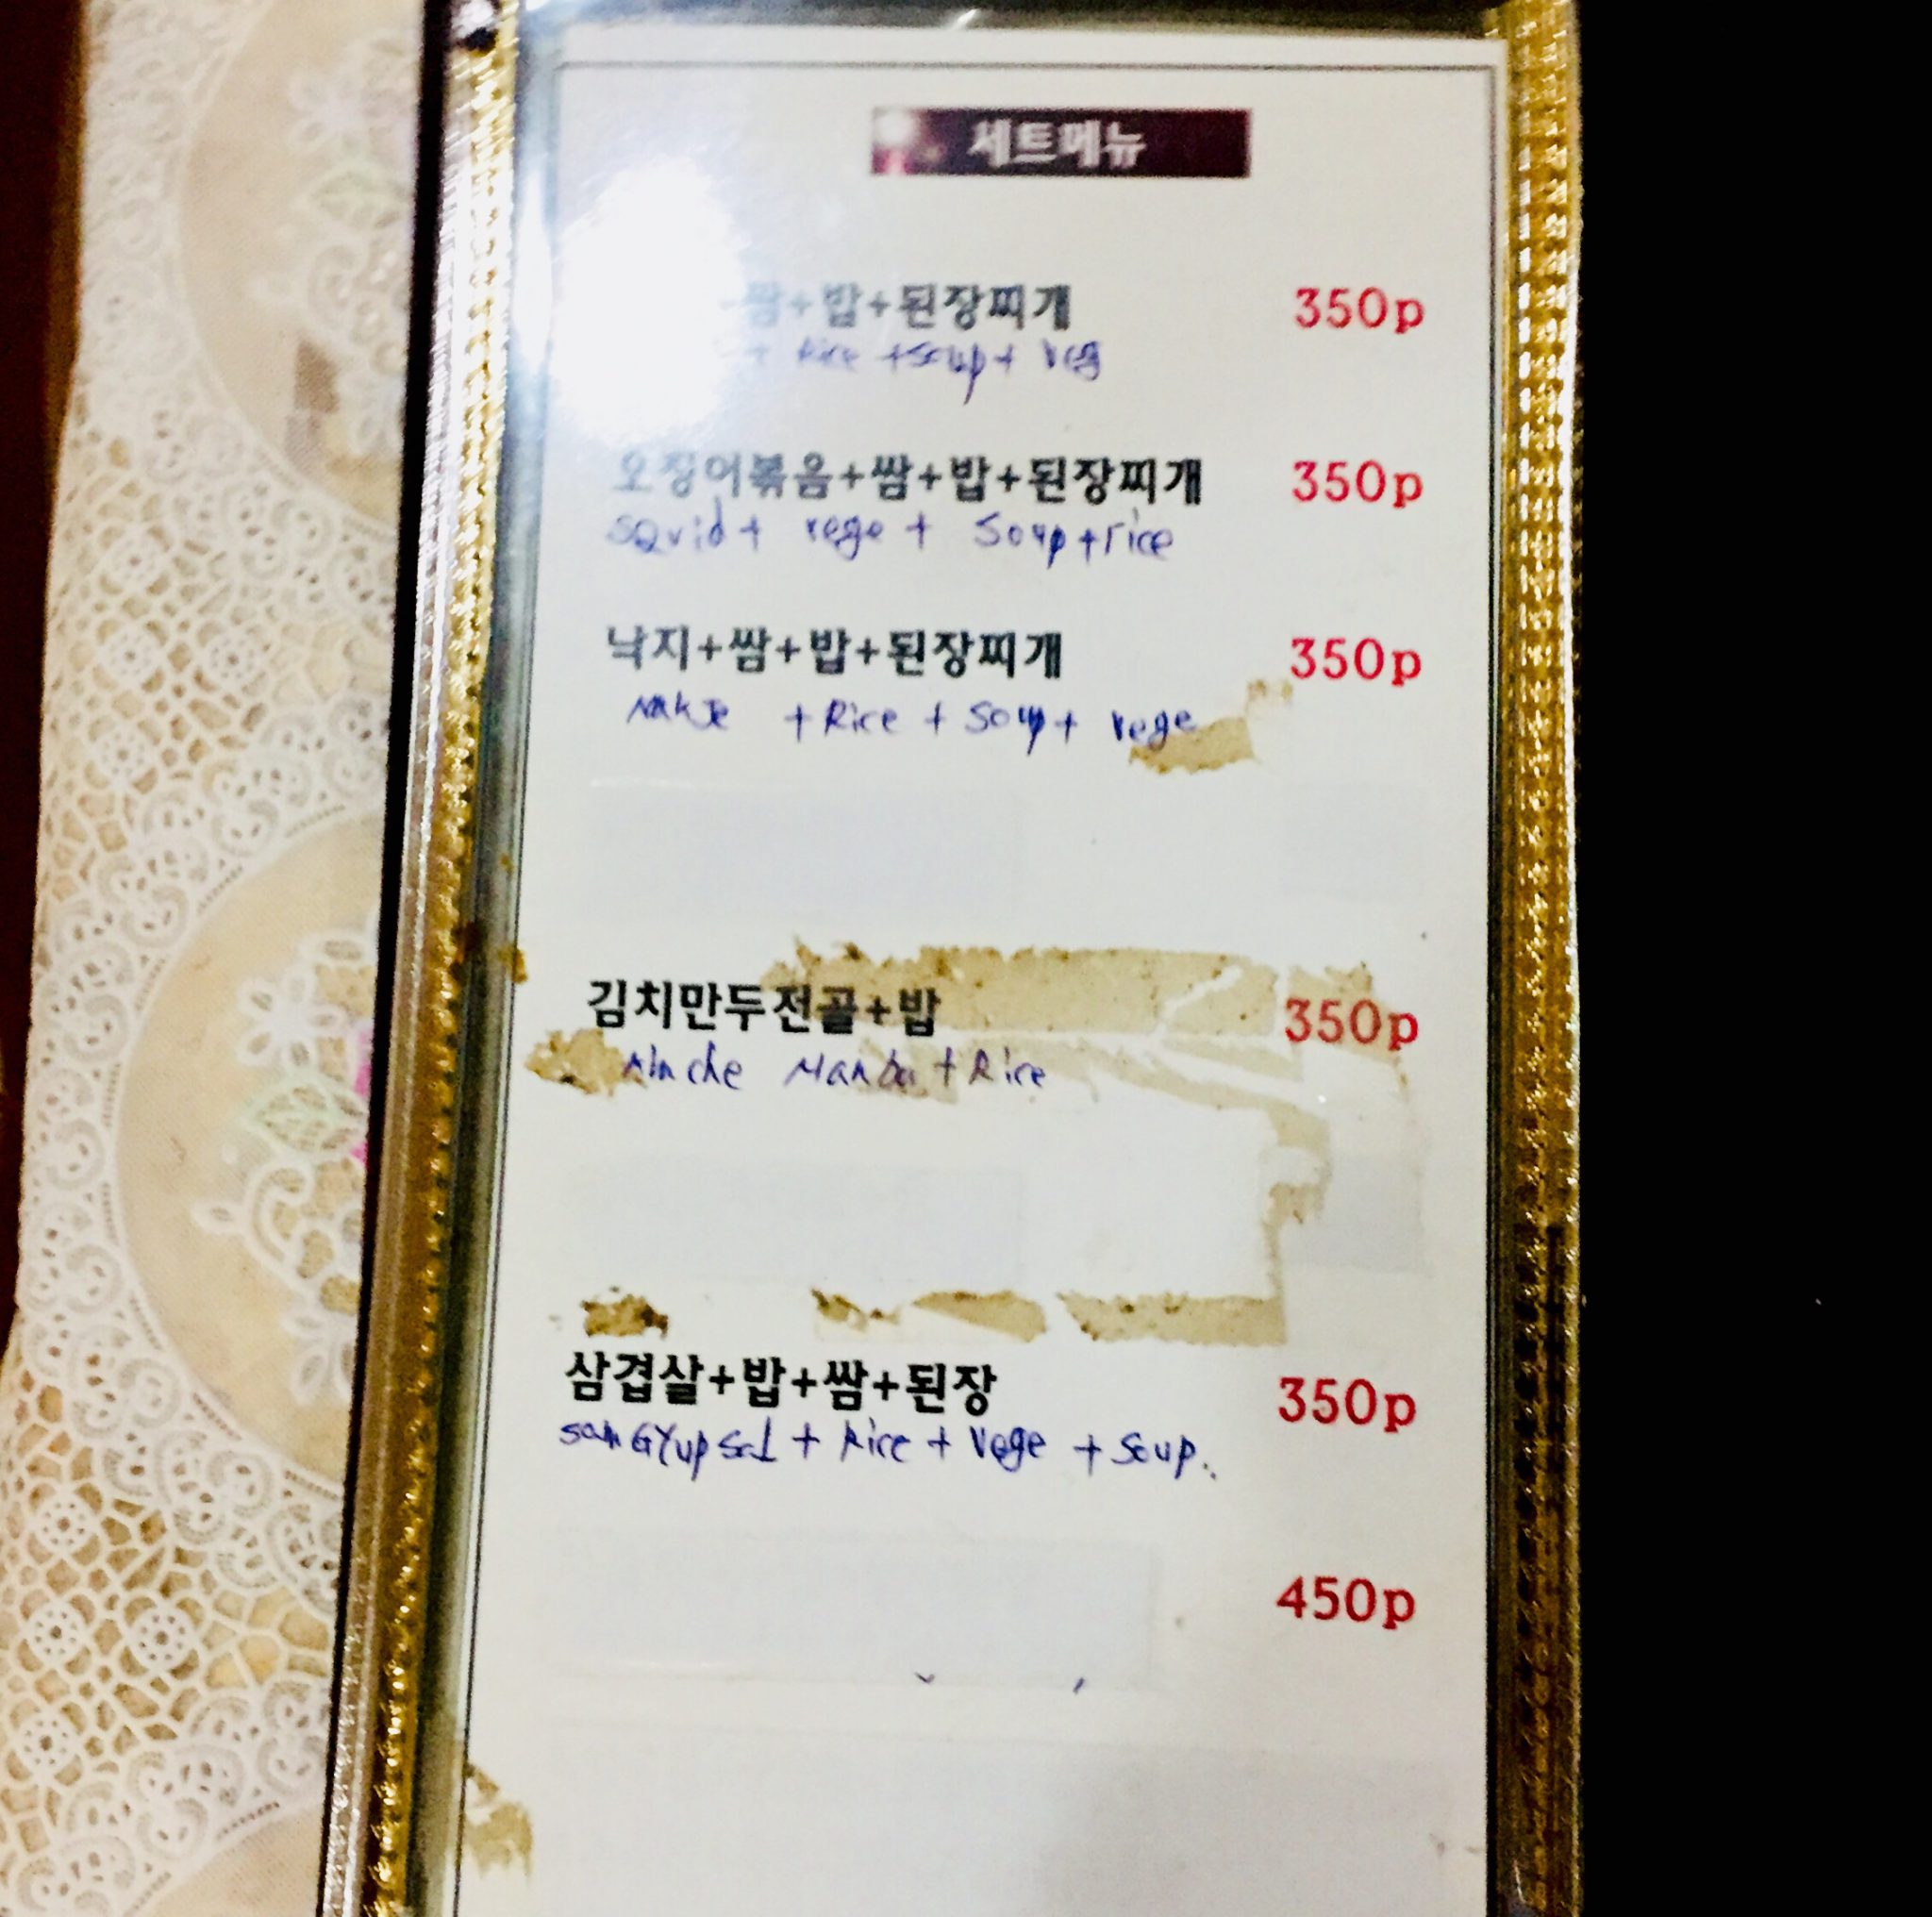 세트메뉴
쌈+밥+된장찌개 350p
+ Rice +Soup+ Veg
오징어볶음+쌈+밥+된장찌개 350p
SQuid+ vege + Soup+rice
낙지+쌈+밥+된장찌개 350p
NakJe +Rice + Soup+ vege
김치만두전골+밥 350p
Mandu + Rice
삼겹살+밥+쌈+된장 350p
samGYupSal + Rice + Vege + Soup.
450p